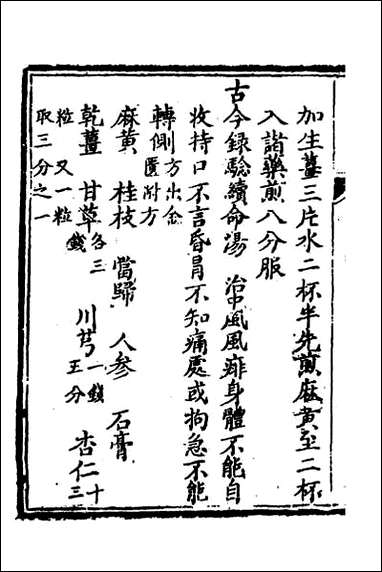 加生薑三片水二杯半先煎麻黄至二杯
入諸藥煎八分服
古今録驗續命湯　治中風風痱身體不能自
收持口不言昏冒不知痛處或拘急不能
轉側方出金匱附方
麻黄　桂枝　當歸　人參　石膏
乾薑　甘草各三錢　川芎一錢五分　杏仁十三
粒又一粒取三分之一